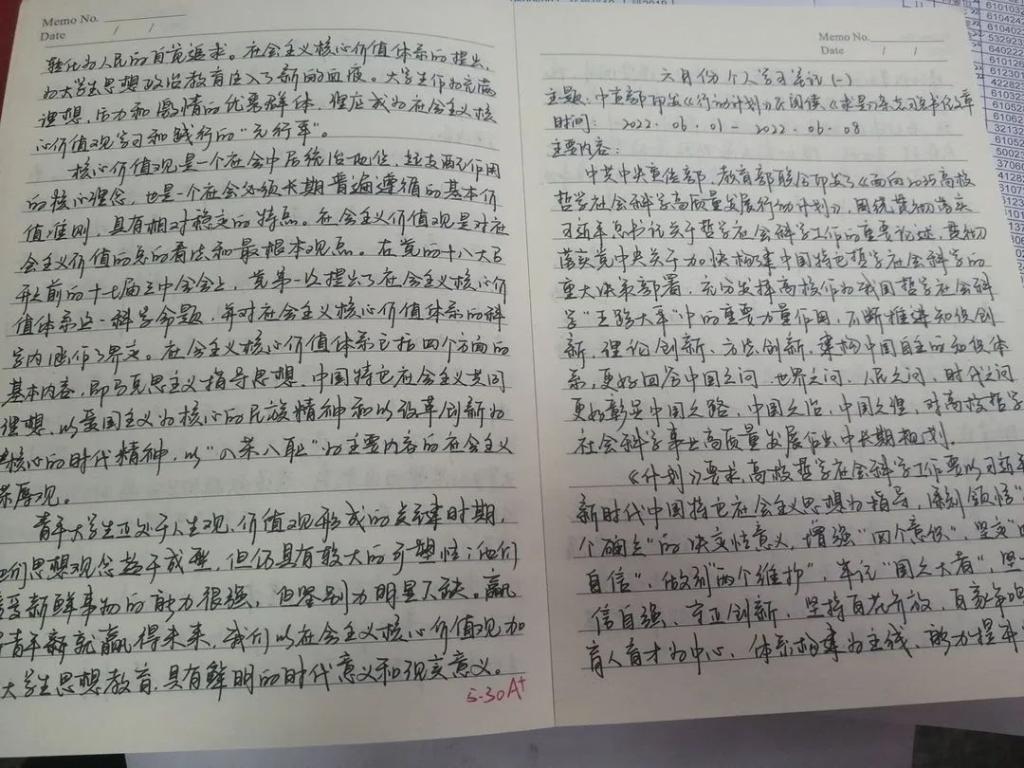 Memo No.
Date / /
转化为人民的自觉追求。社会主义核心价值体系的提出,
为大学生思想政治教育注入了新的血液。大学生作为充满
理想、活力和激情的优秀群体,理应成为社会主义核
心价值观学习和践行的“先行军”。
核心价值观是一个社会中居统治地位、起支配作用
的核心理念,也是一个社会必须长期普遍遵循的基本价
值准则,具有相对稳定的特点。社会主义价值观是对社
会主义价值的总的看法和最根本观点。在党的十八大召
开之前的十七届三中全会上,党第一次提出了社会主义核心价
值体系这一科学命题,并对社会主义核心价值体系的科
学内涵作了界定。社会主义核心价值体系包括四个方面的
基本内容,即马克思主义指导思想、中国特色社会主义共同
理想、以爱国主义为核心的民族精神和以改革创新为
核心的时代精神,以“八荣八耻”为主要内容的社会主义
荣辱观。
青年大学生正处于人生观、价值观形成的关键时期,
他们思想观念趋于成型,但仍具有较大的可塑性;他们
接受新鲜事物的能力很强,但鉴别力明显不缺。赢
得青年群就赢得未来,我们以社会主义核心价值观加
大学生思想教育,具有鲜明的时代意义和现实意义。
5-30 A+
Memo No.
Date / /
六月份个人学习笔记(一)
主题:中宣部印发《行动计划》
时间:2022.06.01-2022.06.08
主要内容:
中共中央宣传部、教育部联合印发了《面向2035高校
哲学社会科学高质量发展行动计划》,围绕贯彻落实
习近平总书记关于哲学社会科学工作的重要论述,贯彻
落实党中央关于加快构建中国特色哲学社会科学的
重大决策部署,充分发挥高校作为我国哲学社会科
学“五路大军”中的重要力量作用,不断推进知识创
新、理论创新、方法创新,建构中国自主的知识体
系,更好回答中国之问、世界之问、人民之问、时代之问
更好彰显中国之路、中国之治、中国之理,对高校哲学
社会科学事业高质量发展作出中长期规划。
《计划》要求,高校哲学社会科学工作要以习近平
新时代中国特色社会主义思想为指导,深刻领悟“
个确立”的决定性意义,增强“四个意识”、坚定“
自信”、做到“两个维护”,牢记“国之大者”,坚
信自强、守正创新,坚持百花齐放、百家争鸣
育人育才为中心、体系构建为主线、能力提升